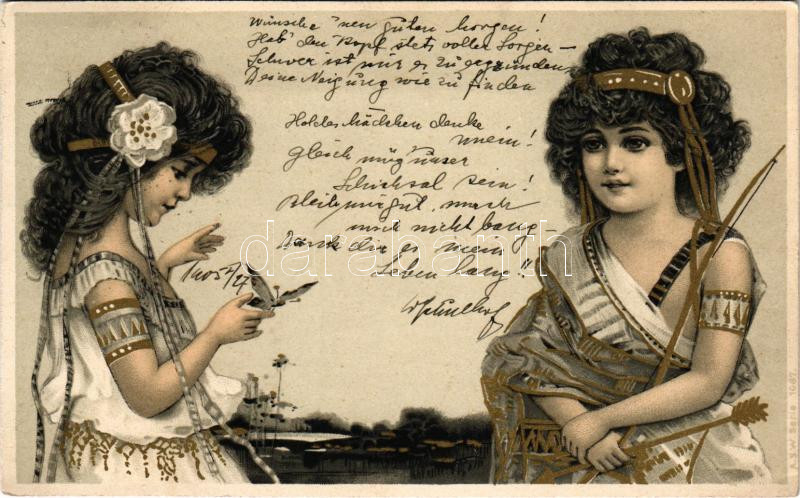 Wünsche 'nen guten Morgen!
Hab' den Kopf stets voller Sorgen –
Schwer ist mir es zu ergründen
Deine Neigung wie zu finden
Holdes Mädchen denke
mein!
Gleich mög' unser
Schicksal sein!
Bleib mir gut, mach
mich nicht bang –
Danke dir es mein
Leben lang!!
1905
darabanth
A.S.W. Serie 1087